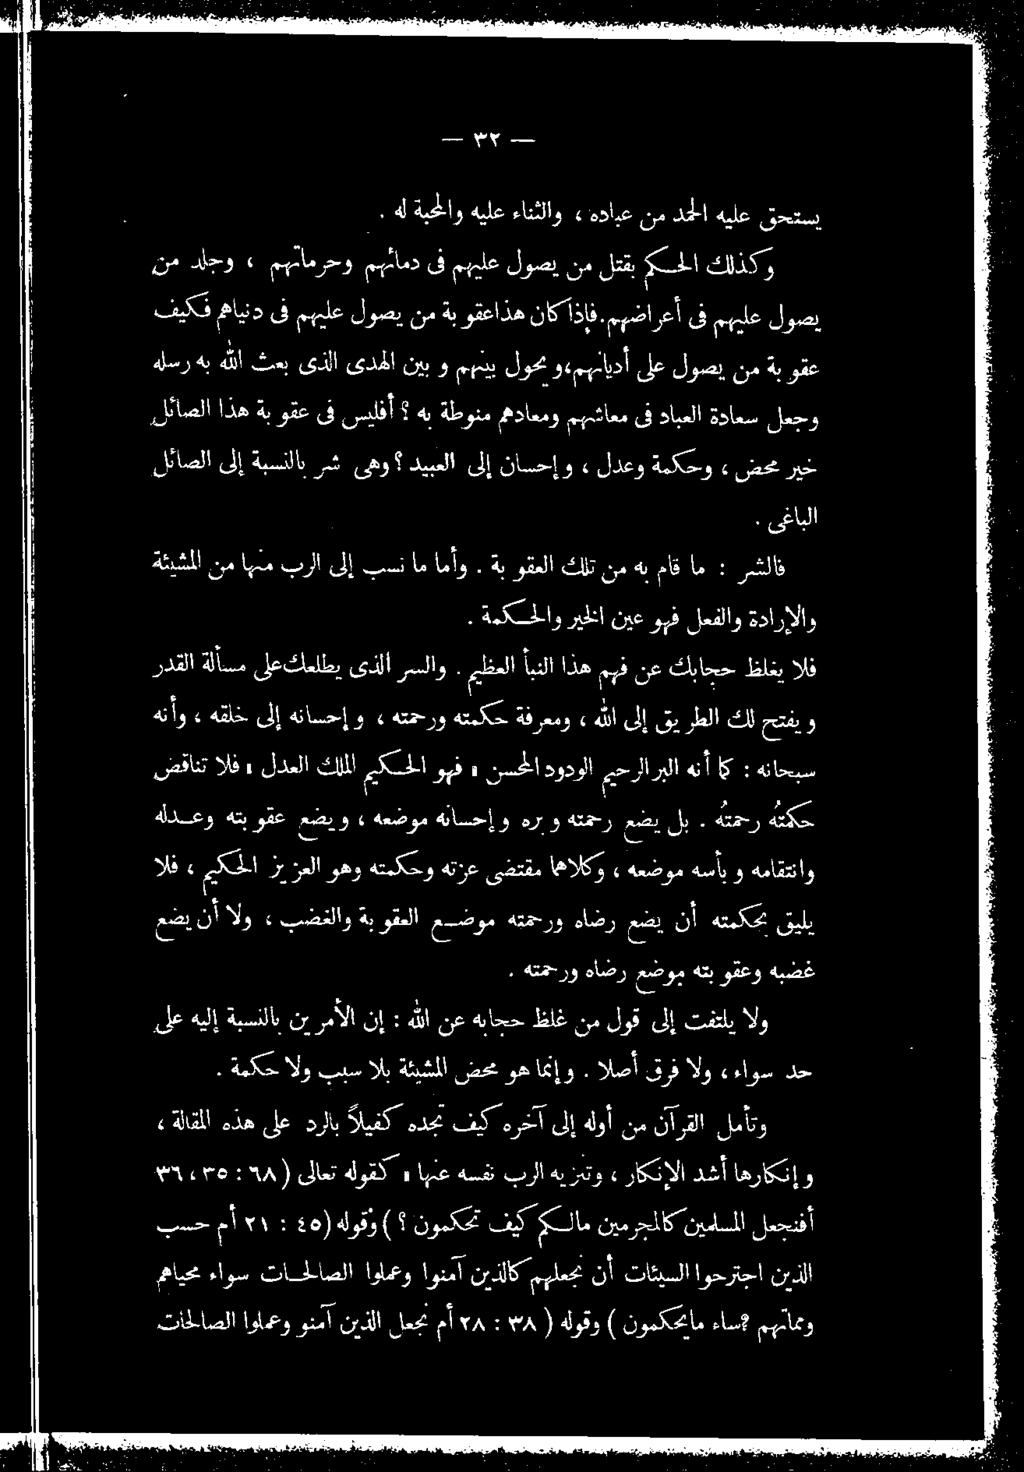 — ٣٢ —
يستحق عليه الحمد من عباده ، والثناء عليه والمحبة له .
وكذلك الحكم بقتل من يصول عليهم فى دمائهم وحرماتهم ، وجلد من
يصول عليهم فى أعراضهم . فإذا كان هذا عقوبة من يصول عليهم فى دنياهم فكيف
عقوبة من يصول على أديانهم ، ويحول بينهم وبين الهدى الذى بعث الله به رسله
وجعل سعادة العباد فى معاشهم ومعادهم منوطة به ؟ أفليس فى عقوبة هذا الصائل
خير محض ، وحكمة وعدل ، وإحسان إلى العبيد ؟ وهى شر بالنسبة إلى الصائل
الباغى .
فالشر : ما قام به من تلك العقوبة . وأما ما نسب إلى الرب منها من المشيئة
والإرادة والفعل فهو عين الخير والحكمة .
فلا يغلظ حجابك عن فهم هذا النبأ العظيم . والسر الذى يطلعك على مسألة القدر
ويفتح لك الطريق إلى الله ، ومعرفة حكمته ورحمته ، وإحسانه إلى خلقه ، وأنه
سبحانه : كما أنه البر الرحيم الودود المحسن ، فهو الحكيم الملك العدل ، فلا تناقض
حكمتُه رحمتَه . بل يضع رحمته وبره وإحسانه موضعه ، ويضع عقوبته وعدله
وانتقامه وبأسه موضعه ، وكلاهما مقتضى عزته وحكمته وهو العزيز الحكيم ، فلا
يليق بحكمته أن يضع رضاه ورحمته موضع العقوبة والغضب ، ولا أن يضع
غضبه وعقوبته موضع رضاه ورحمته .
ولا يلتفت إلى قول من غلظ حجابه عن الله : إن الأمرين بالنسبة إليه على
حد سواء ، ولا فرق أصلا . وإنما هو محض المشيئة بلا سبب ولا حكمة .
وتأمل القرآن من أوله إلى آخره كيف تجده كفيلاً بالرد على هذه المقالة ،
وإنكارها أشد الإنكار ، وتنزيه الرب نفسه عنها ، كقوله تعالى ( ٦٨ : ٣٥ ، ٣٦
أفنجعل المسلمين كالمجرمين مالكم كيف تحكمون ؟ ) وقوله ( ٤٥ : ٢١ أم حسب
الذين اجترحوا السيئات أن نجعلهم كالذين آمنوا وعملوا الصالحات سواء محياهم
ومماتهم ؟ ساء مايحكمون ) وقوله ( ٣٨ : ٢٨ أم نجعل الذين آمنو وعملوا الصالحات